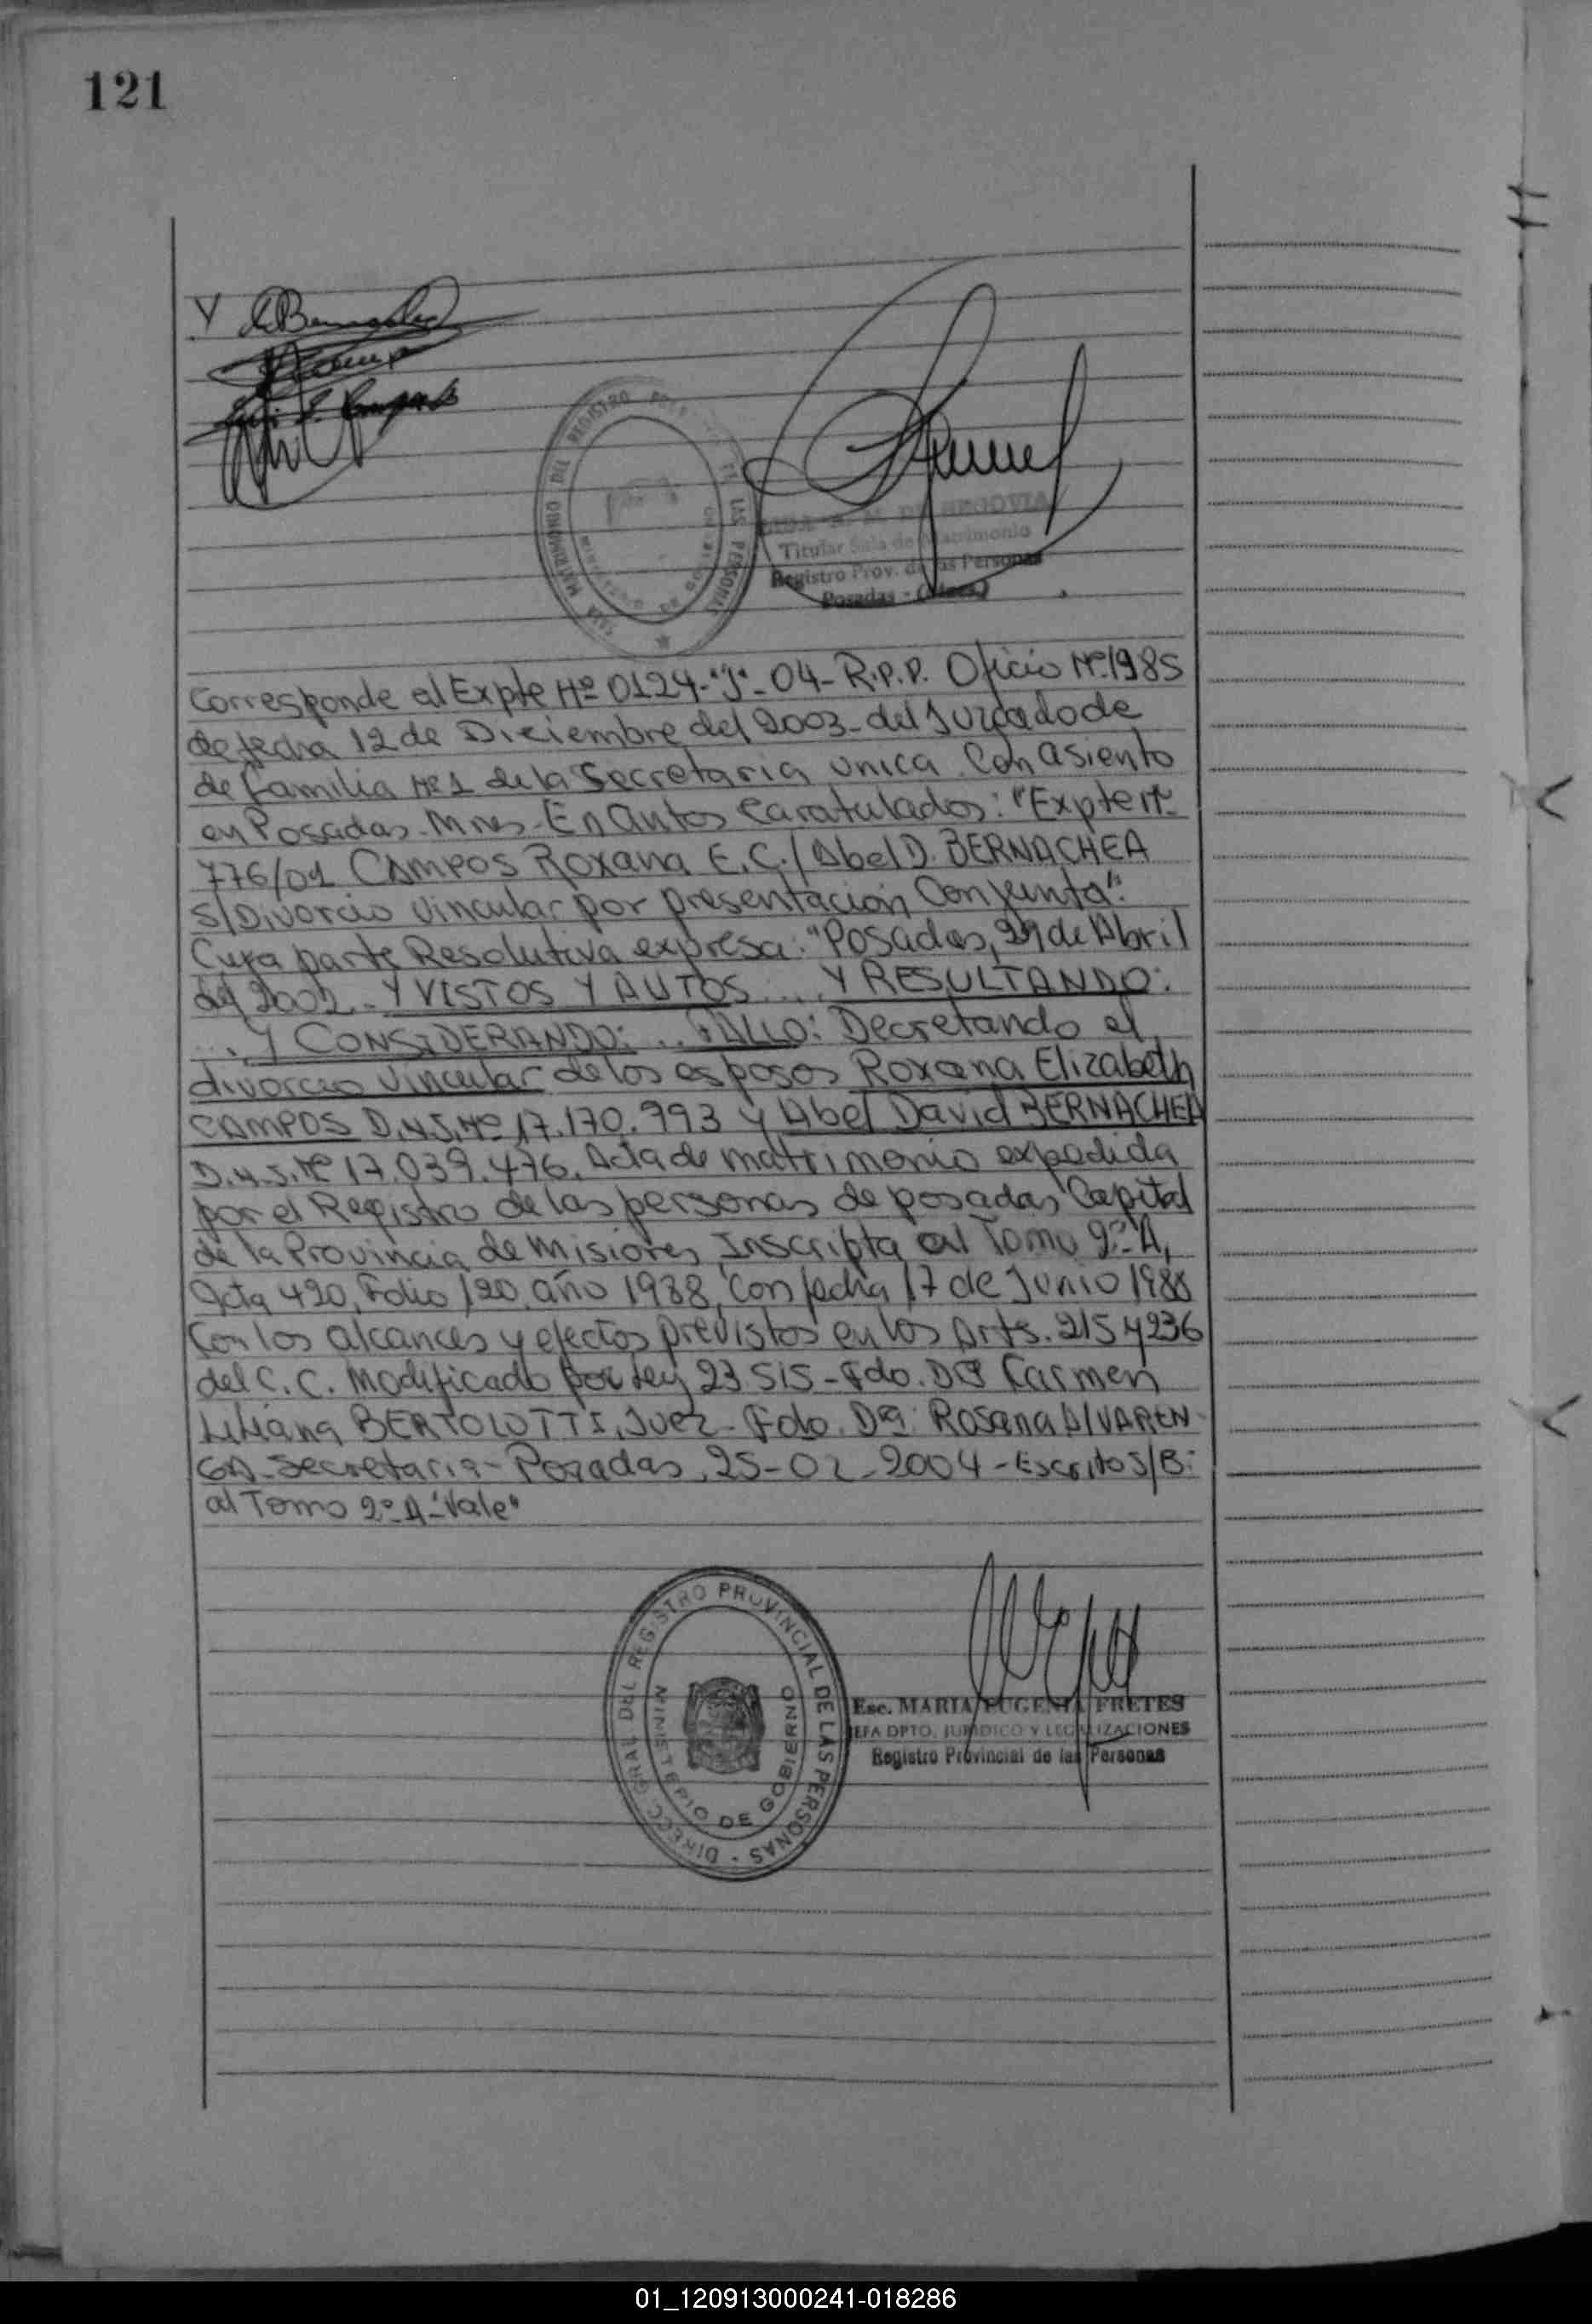 121
Y
REGISTRO
DEL
LAS PERSONAS
SALA MATRIMONIO
DE SEGOVIA
Titular Sala de Matrimonio
Registro Prov. de las Personas
Posadas - (Mnes)
Corresponde al Expte Nº 0124-"J"-04-R.P.P. Oficio Nº 1985
de fecha 12 de Diciembre del 2003-del Juzgado de
de familia Nº 1 de la Secretaria unica Con asiento
en Posadas-Mnes-En Autos Caratulados: "Expte nº
776/01 CAMPOS Roxana E. C./ Abel D. BERNACHEA
S/Divorcio vincular por presentación Conjunta".
Cuya parte Resolutiva expresa: "Posadas, 29 de Abril
del 2002.- Y VISTOS Y AUTOS .... Y RESULTANDO:
... Y CONSIDERANDO: ... FALLO: Decretando el
divorcio vincular de los esposos Roxana Elizabeth
CAMPOS D.N.I. Nº 17.170.993 y Abel David BERNACHEA
D.N.I. Nº 17.039.476. Acta de matrimonio expedida
por el Registro de las personas de posadas Capital
de la Provincia de Misiones, Inscripta al Tomo 2º-A,
Acta 420, Folio 120, año 1988, Con fecha 17 de Junio 1988
Con los alcances y efectos previstos en los Arts. 215 y 236
del C.C. Modificado por Ley 23515-Fdo. Dra Carmen
Liliana BERTOLOTTI, Juez-Fdo. Dra: Rosana ALVAREN-
GA-Secretaria-Posadas, 25-02-2004-Escrito S/B:
al Tomo 2º-A-"Vale"
DIRECC. GRAL DEL REGISTRO PROVINCIAL DE LAS PERSONAS -
MINISTERIO DE GOBIERNO
Esc. MARIA EUGENIA FRETES
JEFA DPTO. JURIDICO Y LEGALIZACIONES
Registro Provincial de las Personas
01_120913000241-018286